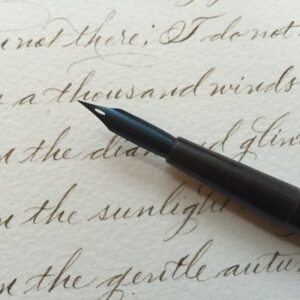 not there; I do not
a thousand winds
the diamond glin
the sunlight
the gentle autu